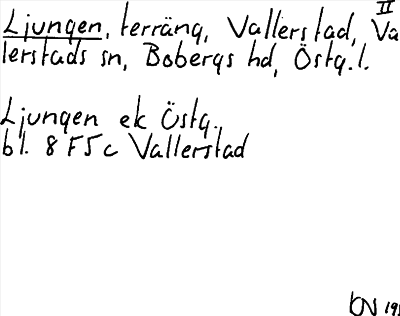 II
Ljungen, terräng, Vallerstad, Va
lerstads sn, Bobergs hd, Östg. l.
Ljungen ek Östg.
bl. 8 F 5 c Vallerstad